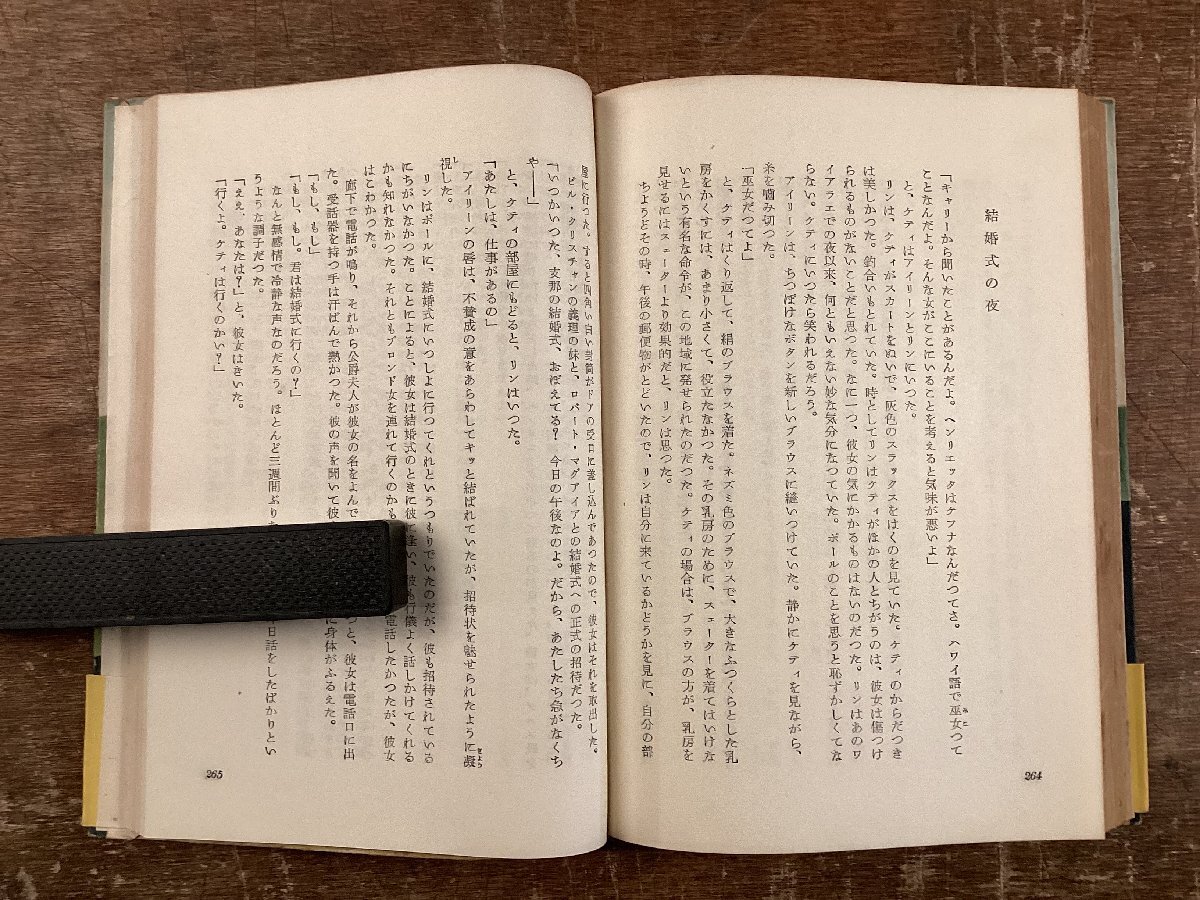 結婚式の夜
「キャリーから聞いたことがあるんだよ。ヘンリエッタはケフナなんだつてさ。ハワイ語で巫女つて
ことなんだよ。そんな女がここにいることを考えると気味が悪いよ」
と、ケティはアイリーンとリンにいつた。
リンは、ケティがスカートをぬいで、灰色のスラックスをはくのを見ていた。ケティのからだつき
は美しかつた。釣合いもとれていた。時としてリンはケティがほかの人とちがうのは、彼女は傷つけ
られるものがないことだと思つた。なに一つ、彼女の気にかかるものはないのだつた。リンはあのワ
イアラエでの夜以来、何ともいえない妙な気分になつていた。ポールのことを思うと恥ずかしくてな
らない。ケティにいつたら笑われるだろう。
アイリーンは、ちつぽけなボタンを新しいブラウスに縫いつけていた。静かにケティを見ながら、
糸を嚙み切つた。
「巫女だつてよ」
と、ケティはくり返して、絹のブラウスを着た。ネズミ色のブラウスで、大きなふつくらとした乳
房をかくすには、あまり小さくて、役立たなかつた。その乳房のために、スェーターを着てはいけな
いという有名な命令が、この地域に発せられたのだつた。ケティの場合は、ブラウスの方が、乳房を
見せるにはスェーターより効果的だと、リンは思つた。
ちようどその時、午後の郵便物がとどいたので、リンは自分に来ているかどうかを見に、自分の部
264
屋に行つた。すると四角い白い封筒がドアの受口に差し込んであつたので、彼女はそれを取出した。
ビル・クリスチャンの義理の妹と、ロバート・マグアイアとの結婚式への正式の招待だつた。
「いつかいつた、支那の結婚式、おぼえてる？ 今日の午後なのよ。だから、あたしたち急がなくち
や――」
と、ケティの部屋にもどると、リンはいつた。
「あたしは、仕事があるの」
アイリーンの唇は、不賛成の意をあらわしてキッと結ばれていたが、招待状を魅せられたように凝
視した。
リンはポールに、結婚式にいつしよに行つてくれというつもりでいたのだが、彼も招待されている
にちがいなかつた。ことによると、彼女は結婚式のときに彼に逢い、彼も行儀よく話しかけてくれる
かも知れなかつた。それともブロンド女を連れて行くのかも 電話したかつたが、彼女
はこわかつた。
廊下で電話が鳴り、それから公爵夫人が彼女の名をよんで つと、彼女は電話口に出
た。受話器を持つ手は汗ばんで熱かつた。彼の声を聞いて彼女 に身体がふるえた。
「もし」
「もし、もし。君は結婚式に行くの？」
なんと無感情で冷静な声なのだろう。ほとんど三週間ぶり 日話をしたばかりとい
うような調子だつた。
「ええ、あなたは？」と、彼女はきいた。
「行くよ。ケティは行くのかい？」
265